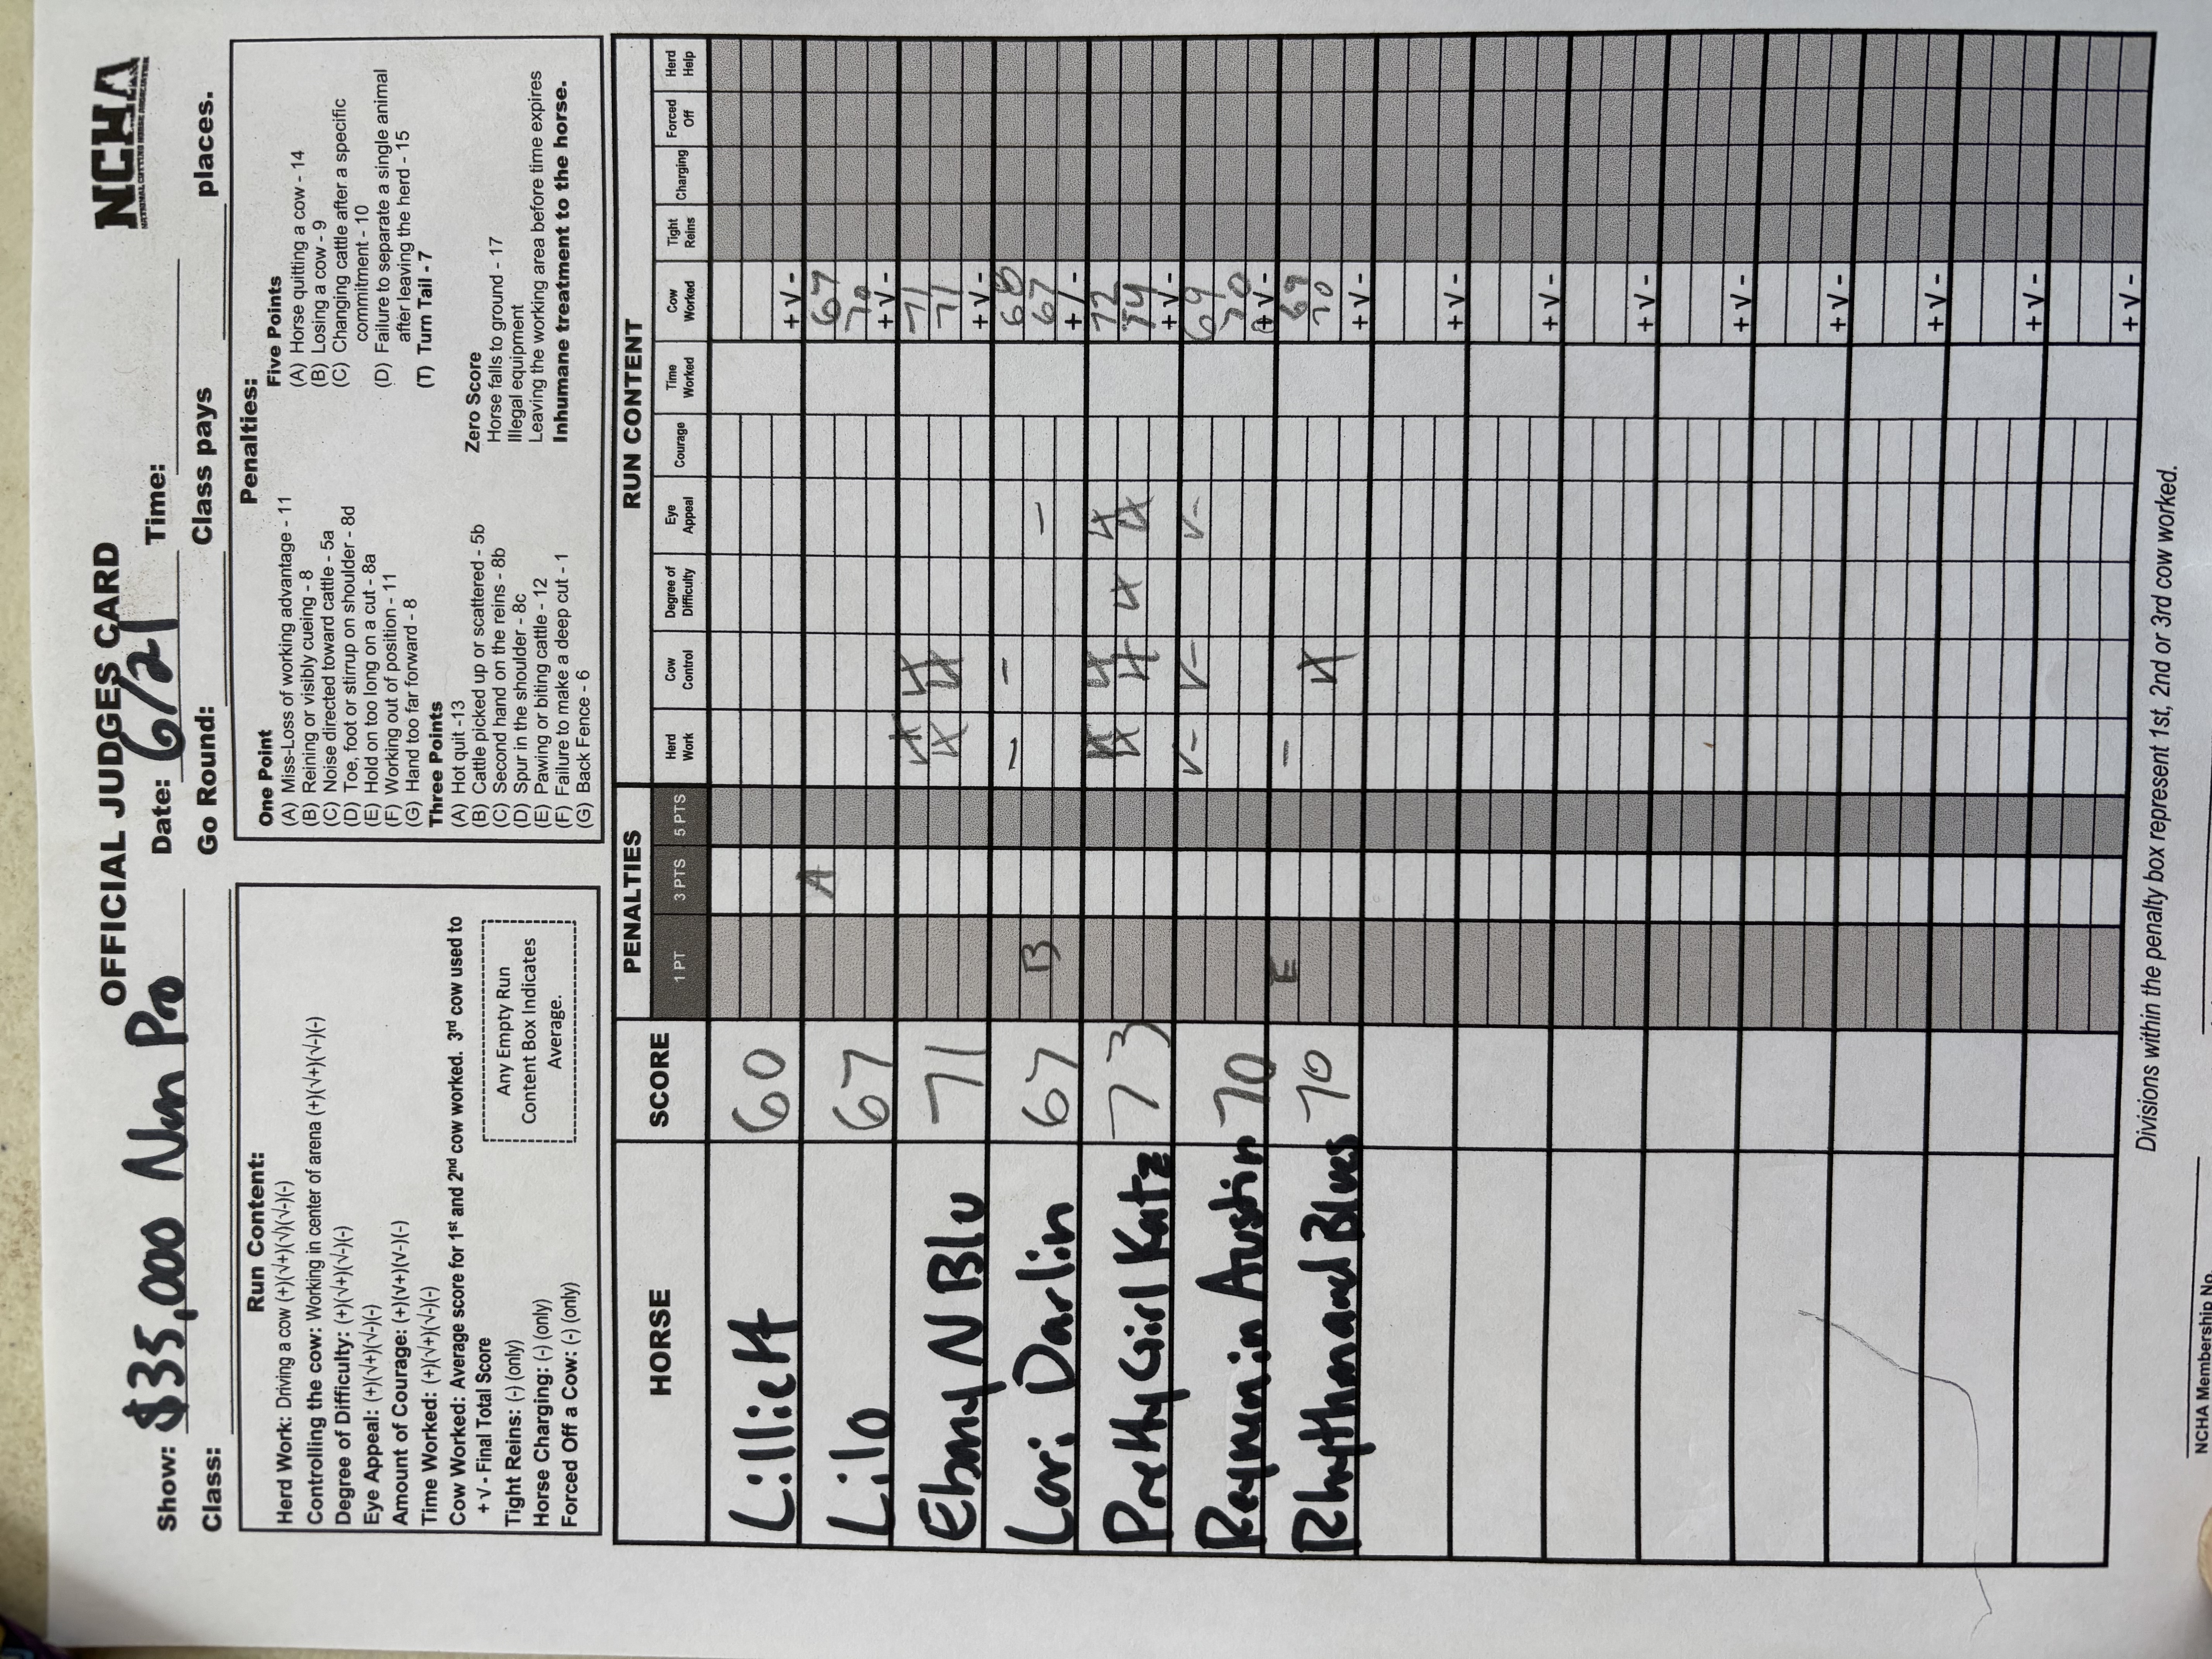 OFFICIAL JUDGES CARD
NCHA
Show: $35,000 Non Pro Date: 6/21 Time:
Class: Go Round: Class pays places.
Run Content:
Herd Work: Driving a cow (+)(√+)(√)(√-)(-)
Controlling the cow: Working in center of arena (+)(√+)(√-)(-)
Degree of Difficulty: (+)(√+)(√-)(-)
Eye Appeal: (+)(√+)(√-)(-)
Amount of Courage: (+)(√+)(√-)(-)
Time Worked: (+)(√+)(√-)(-)
Cow Worked: Average score for 1st and 2nd cow worked. 3rd cow used to
+ √ - Final Total Score
Tight Reins: (-) (only)
Horse Charging: (-) (only)
Forced Off a Cow: (-) (only)
Any Empty Run
Content Box Indicates
Average.
Penalties:
One Point
(A) Miss-Loss of working advantage - 11
(B) Reining or visibly cueing - 8
(C) Noise directed toward cattle - 5a
(D) Toe, foot or stirrup on shoulder - 8d
(E) Hold on too long on a cut - 8a
(F) Working out of position - 11
(G) Hand too far forward - 8
Three Points
(A) Hot quit -13
(B) Cattle picked up or scattered - 5b
(C) Second hand on the reins - 8b
(D) Spur in the shoulder - 8c
(E) Pawing or biting cattle - 12
(F) Failure to make a deep cut - 1
(G) Back Fence - 6
Five Points
(A) Horse quitting a cow - 14
(B) Losing a cow - 9
(C) Changing cattle after a specific
commitment - 10
(D) Failure to separate a single animal
after leaving the herd - 15
(T) Turn Tail - 7
Zero Score
Horse falls to ground - 17
Illegal equipment
Leaving the working area before time expires
Inhumane treatment to the horse.
HORSE SCORE PENALTIES RUN CONTENT
1 PT 3 PTS 5 PTS Herd Work Cow Control Degree of Difficulty Eye Appeal Courage Time Worked Cow Worked Tight Reins Charging Forced Off Herd Help
Lilliett 60 + √ -
Lilo 67 A 67 70 + √ -
Ebony N Blu 71 71 71 + √ -
Lori Darlin 67 B - - - 68 67 + √ -
Pretty Girl Katz 73 72 74 + √ -
Reynmin Austin 70 √- √- √- 69 70 + √ -
Rhythmand Blues 70 E - 69 70 + √ -
+ √ -
+ √ -
+ √ -
+ √ -
+ √ -
+ √ -
+ √ -
+ √ -
Divisions within the penalty box represent 1st, 2nd or 3rd cow worked.
NCHA Membership No.